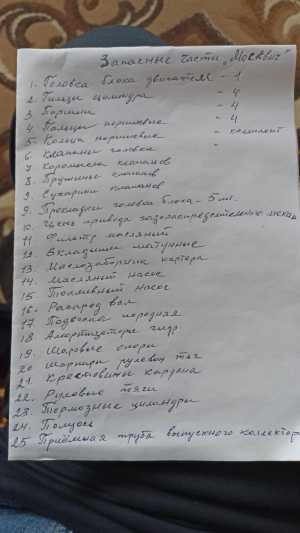 Запасные части „Москвич"
1. Головка блока двигателя - 1
2. Гильзы цилиндра - 4
3 Поршни - 4
4 Пальцы поршневые - 4
5 Кольца поршневые - комплект
6 Клапаны головки "
7 Коромысла клапанов
8. Пружины клапанов
9. Сухарики клапанов
9. Прокладки головки блока - 5 шт.
10. Цепь привода газораспределительно механ
11 Фильтр масляный
12. Вкладыши шатунные
13. Маслозаборник картера
14. Масляный насос
15 Топливный насос
16. Распред вал
17. Подвеска передняя
18 Амортизаторы гидр
19. Шаровые опоры
20 Шарниры рулевых тяг
21. Крестовины кардана
22. Рулевые тяги
23. Тормозные цилиндры
24. Полуось
25 Приёмная труба выпускного коллектора